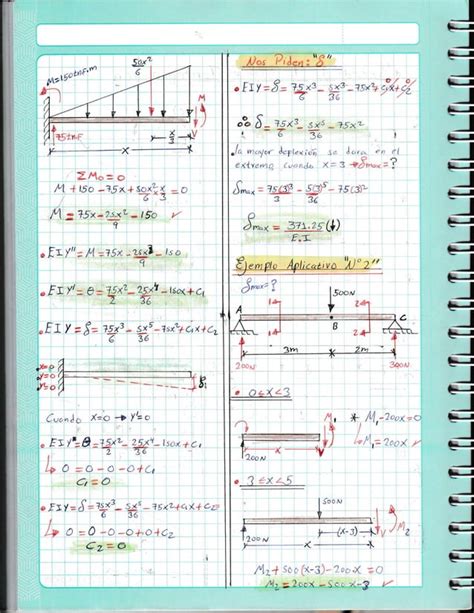 M=150tnf.m
50x²/6
M
75tnF
x/3
V
x
ΣM₀=0
M+150-75x+50x²/6·x/3=0
M=75x-25x³/9-150
• EIY''=M=75x-25x³/9-150
• EIY'=θ=75x²/2-25x⁴/36-150x+C₁
• EIY=δ=75x³/6-5x⁵/36-75x²+C₁x+C₂
x=0
y'=0
y=0
Cuando x=0 → y'=0
• EIY'=θ=75x²/2-25x⁴/36-150x+C₁
0=0-0-0+C₁
C₁=0
• EIY=δ=75x³/6-5x⁵/36-75x²+C₁x+C₂
0=0-0-0+0+C₂
C₂=0
Nos Piden: "δ"
• EIY=δ=75x³/6-5x⁵/36-75x²+C₁x+C₂
∴ δ=75x³/6-5x⁵/36-75x²
la mayor deflexión se dara en el
extremo cuando x=3 → δmax=?
δmax=75(3)³/6-5(3)⁵/36-75(3)²
δmax=371.25(↓)/E.I
Ejemplo Aplicativo "N°2"
δmax=?
500N
A
1
2
C
B
1
2
3m
2m
200N
300N
• 0≤x<3
M₁
* M₁-200x=0
M₁=200x
V
x
200N
• 3≤x<5
500N
M₂
(x-3)
V
x
200N
M₂+500(x-3)-200x=0
M₂=200x-500⟨x-3⟩